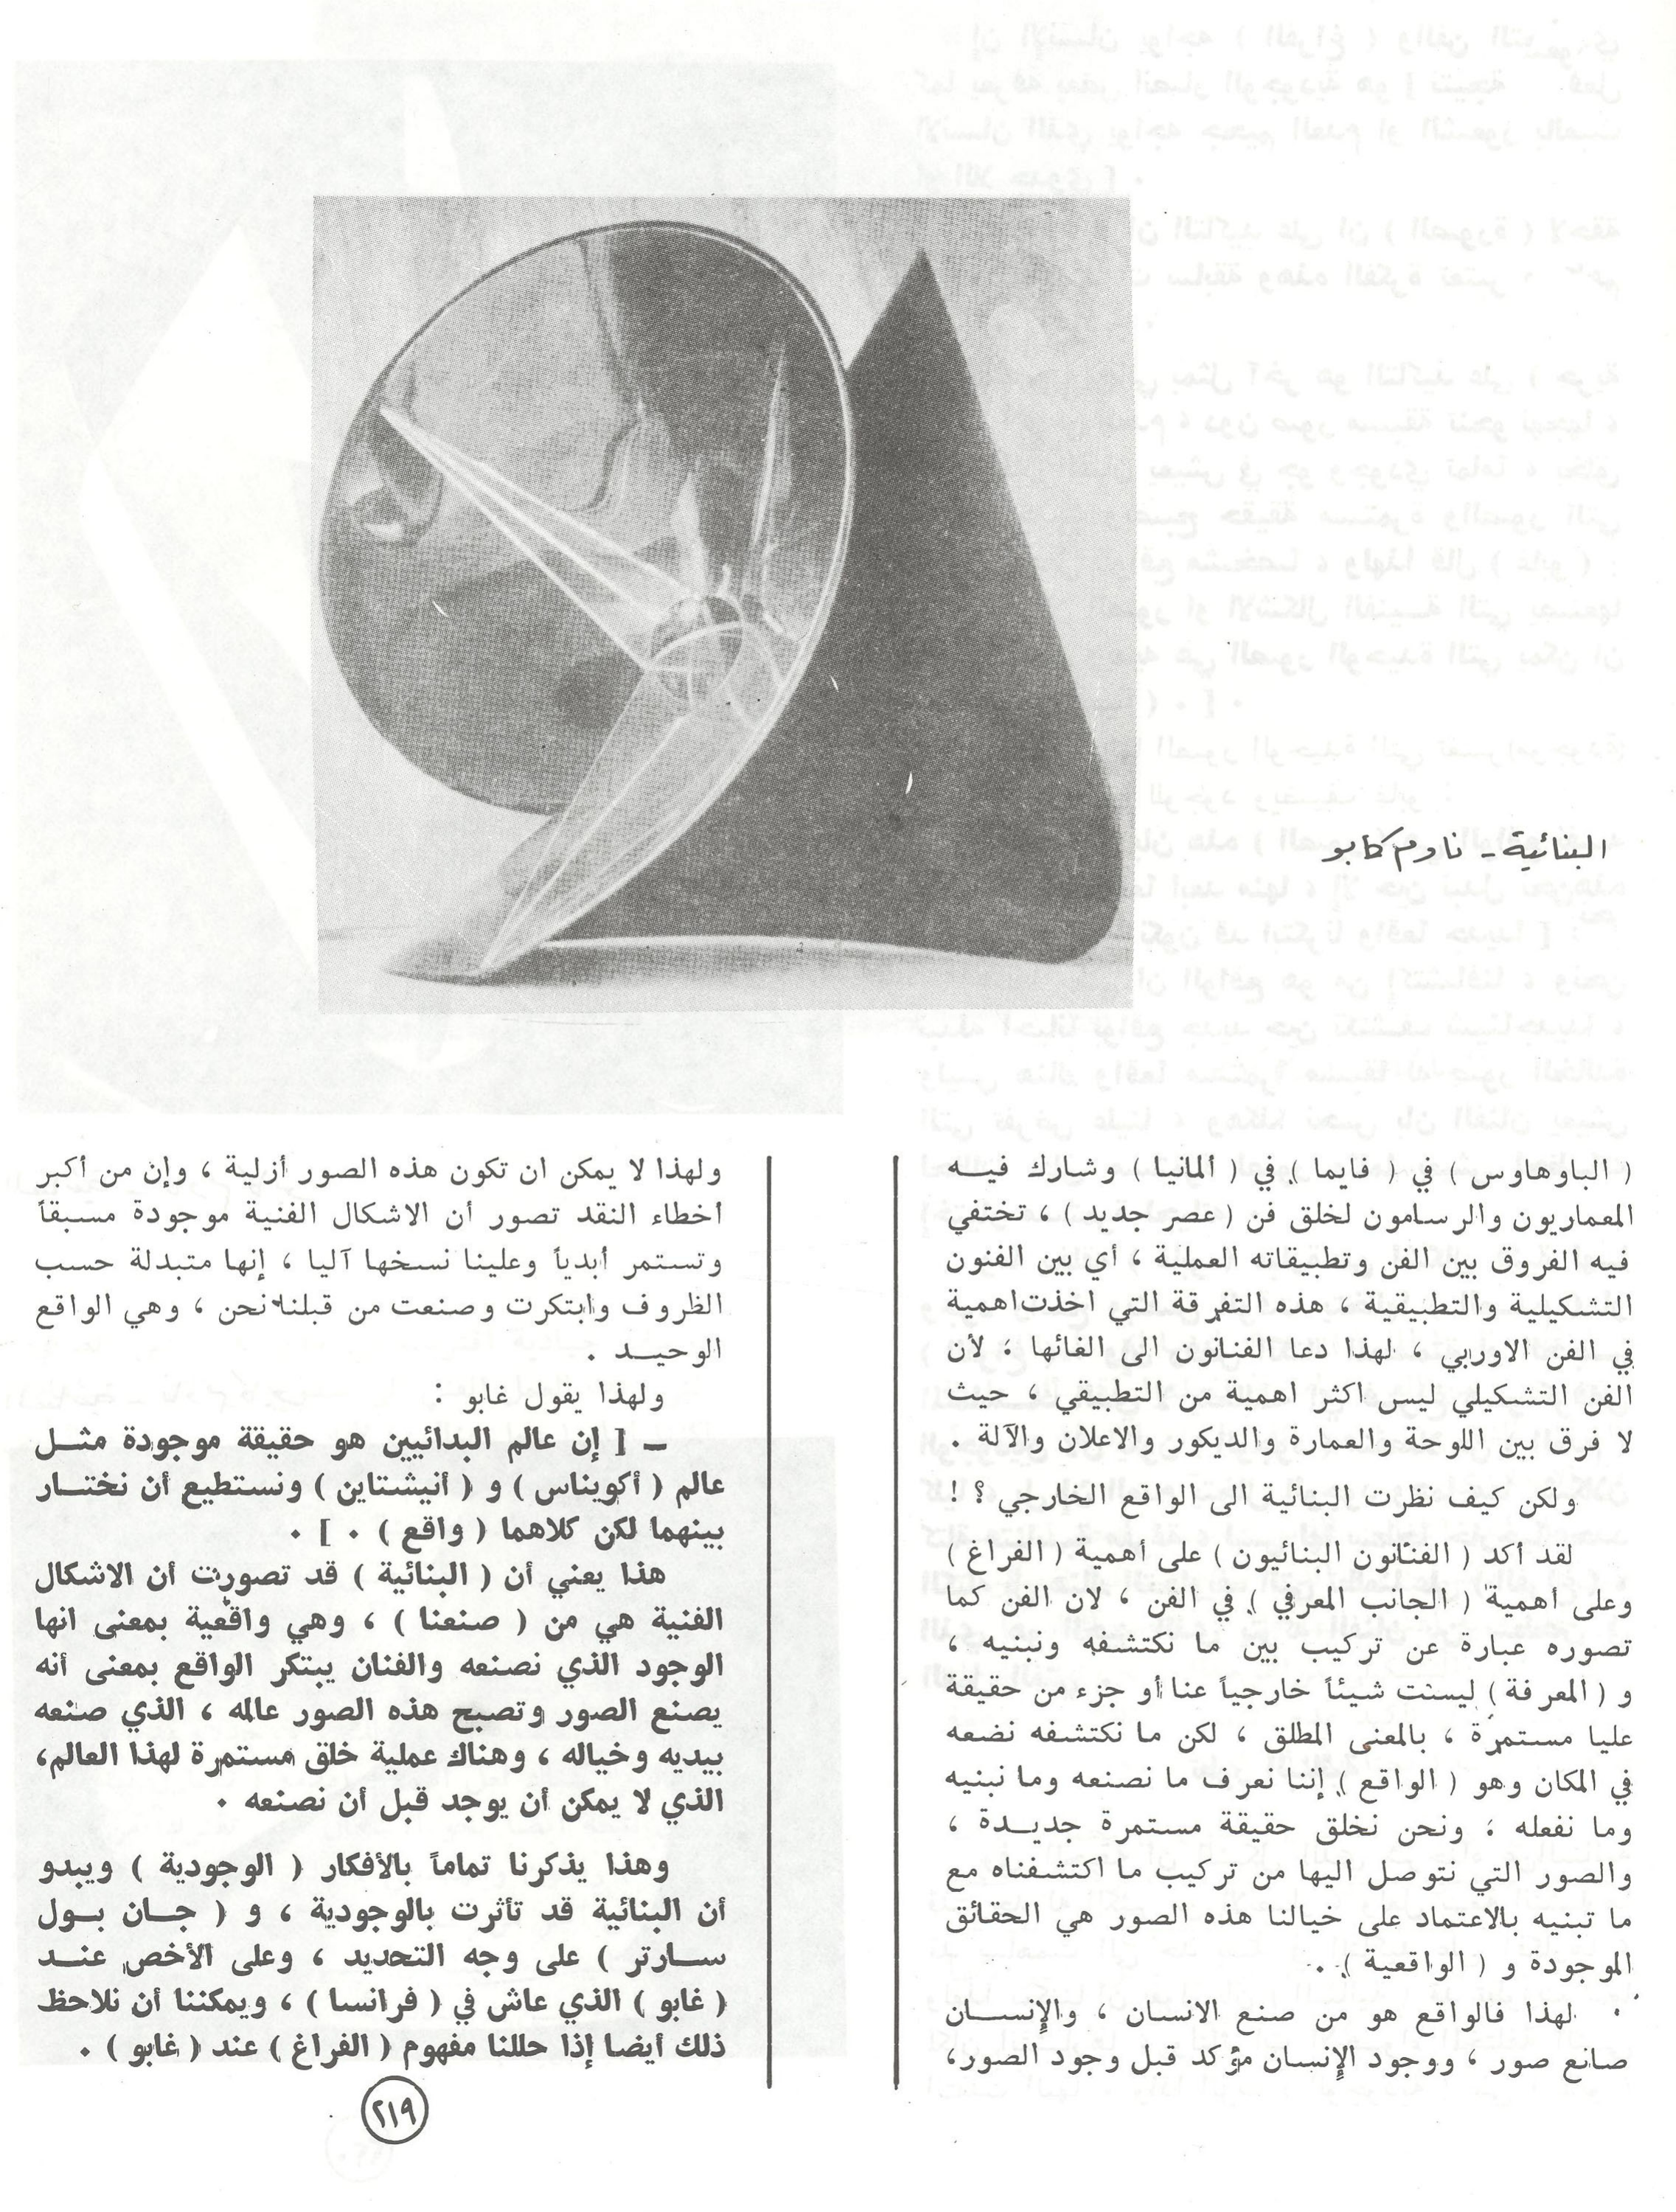 البنائية - ناوم كابو
( الباوهاوس ) في ( فايما ) في ( ألمانيا ) وشارك فيـــه
المعماريون والرسامون لخلق فن ( عصر جديد ) ، تختفي
فيه الفروق بين الفن وتطبيقاته العملية ، أي بين الفنون
التشكيلية والتطبيقية ، هذه التفرقة التي اخذت اهمية
في الفن الاوربي ، لهذا دعا الفنانون الى الغائها ؛ لأن
الفن التشكيلي ليس اكثر اهمية من التطبيقي ، حيث
لا فرق بين اللوحة والعمارة والديكور والاعلان والآلة .
ولكن كيف نظرت البنائية الى الواقع الخارجي ؟ !
لقد أكد ( الفنانون البنائيون ) على أهمية ( الفراغ )
وعلى أهمية ( الجانب المعرفي ) في الفن ، لان الفن كما
تصوره عبارة عن تركيب بين ما نكتشفه ونبنيه ،
و ( المعرفة ) ليست شيئاً خارجياً عنا أو جزء من حقيقة
عليا مستمرة ، بالمعنى المطلق ، لكن ما نكتشفه نضعه
في المكان وهو ( الواقع ) إننا نعرف ما نصنعه وما نبنيه
وما نفعله ؛ ونحن نخلق حقيقة مستمرة جديـــدة ،
والصور التي نتوصل اليها من تركيب ما اكتشفناه مع
ما تبنيه بالاعتماد على خيالنا هذه الصور هي الحقائق
الموجودة و ( الواقعية ) .
لهذا فالواقع هو من صنع الانسان ، والإنســـان
صانع صور ، ووجود الإنسان مؤكد قبل وجود الصور،
ولهذا لا يمكن ان تكون هذه الصور أزلية ، وإن من أكبر
أخطاء النقد تصور أن الاشكال الفنية موجودة مسبقاً
وتستمر أبدياً وعلينا نسخها آليا ، إنها متبدلة حسب
الظروف وابتكرت وصنعت من قبلنا نحن ، وهي الواقع
الوحيـــد .
ولهذا يقول غابو :
– [ إن عالم البدائيين هو حقيقة موجودة مثـــل
عالم ( أكويناس ) و ( أنيشتاين ) ونستطيع أن نختـــار
بينهما لكن كلاهما ( واقع ) . ] .
هذا يعني أن ( البنائية ) قد تصورت أن الاشكال
الفنية هي من ( صنعنا ) ، وهي واقعية بمعنى انها
الوجود الذي نصنعه والفنان يبتكر الواقع بمعنى أنه
يصنع الصور وتصبح هذه الصور عالمه ، الذي صنعه
بيديه وخياله ، وهناك عملية خلق مستمرة لهذا العالم،
الذي لا يمكن أن يوجد قبل أن نصنعه .
وهذا يذكرنا تماماً بالأفكار ( الوجودية ) ويبدو
أن البنائية قد تأثرت بالوجودية ، و ( جـــان بـــول
ســـارتر ) على وجه التحديد ، وعلى الأخص عنـــد
( غابو ) الذي عاش في ( فرانسا ) ، ويمكننا أن نلاحظ
ذلك أيضا إذا حللنا مفهوم ( الفراغ ) عند ( غابو ) .
٢١٩